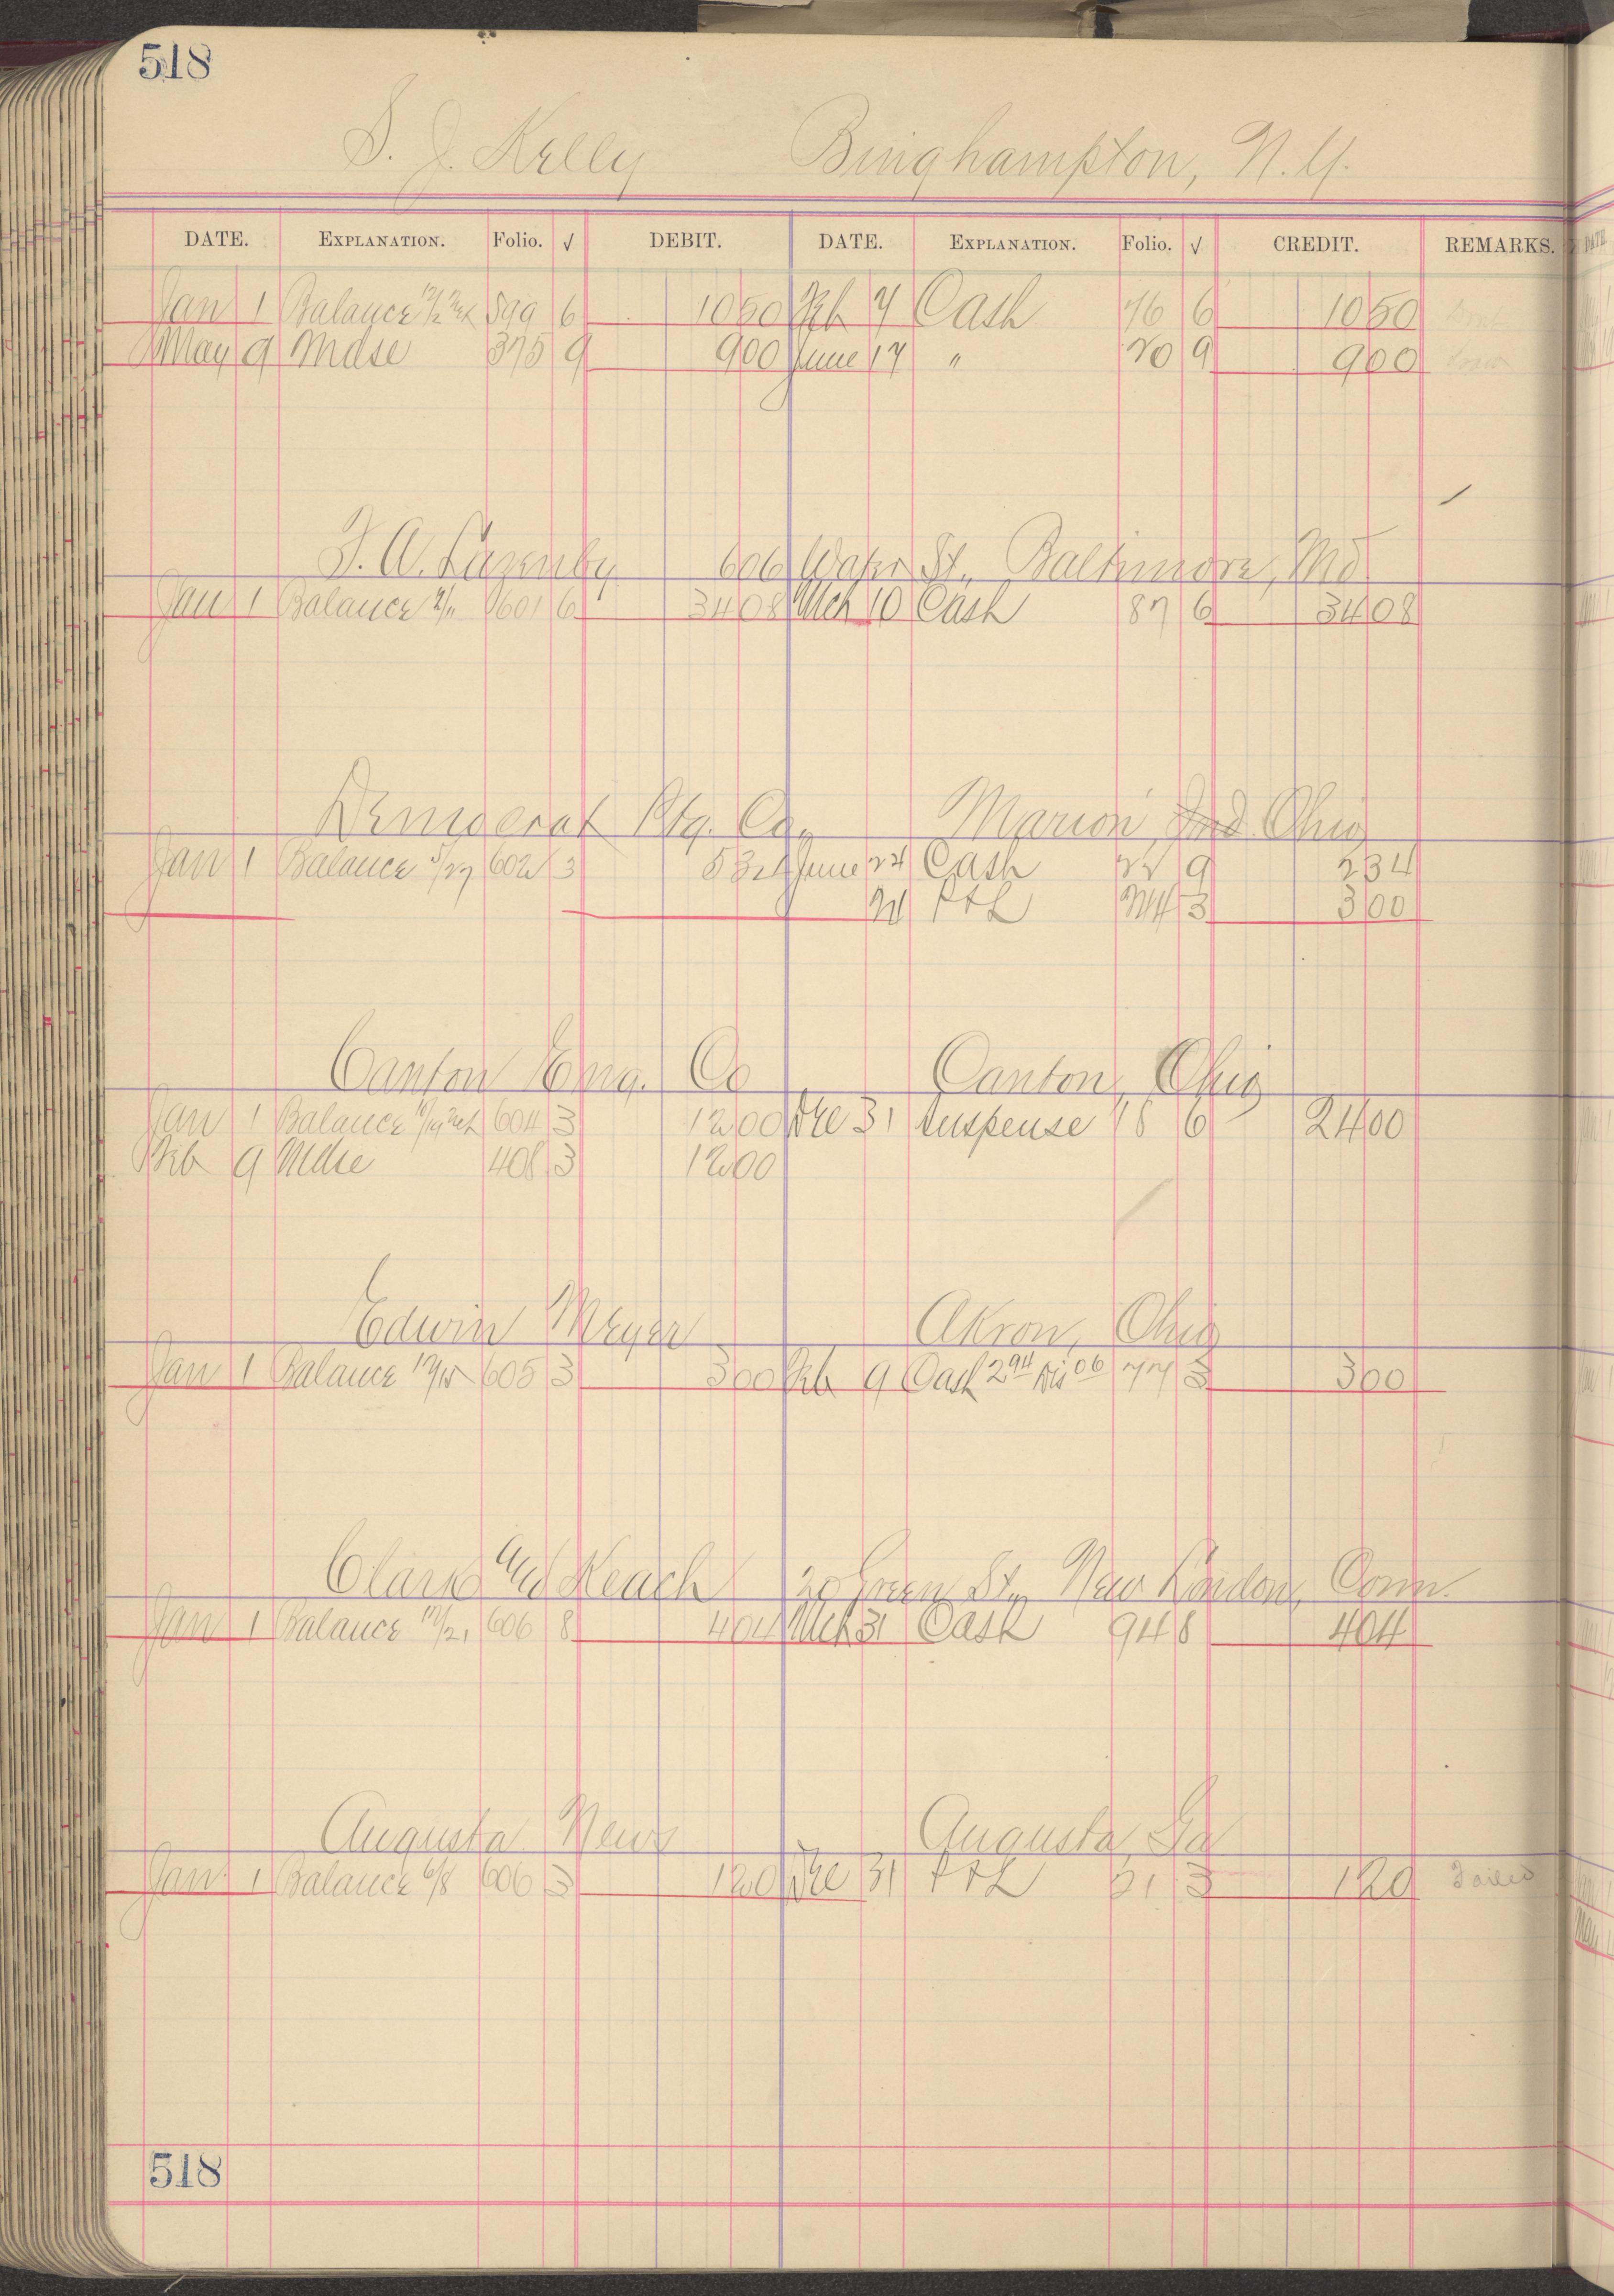 518
S. J. Kelly Binghampton, N.Y.
DATE. EXPLANATION. Folio. √ DEBIT. DATE. EXPLANATION. Folio. √ CREDIT. REMARKS.
Jan 1 Balance 599 6 10 50 Feb 7 Cash 76 6 10 50
May 9 Mdse 375 9 9 00 June 17 " 20 9 9 00
F. A. Lazenby 606 Water St., Baltimore, Md
Jan 1 Balance 601 6 34 08 Mch 10 Cash 87 6 34 08
Democrat Ptg. Co., Marion, Ind. Ohio
Jan 1 Balance 5/27 602 3 5 34 June 24 Cash 22 9 2 34
P & L 3 3 00
Canton Eng. Co Canton, Ohio
Jan 1 Balance 604 3 12 00 Dec 31 Suspense 18 6 24 00
Feb 9 Mdse 408 3 12 00
Edwin Meyer Akron, Ohio
Jan 1 Balance 12/15 605 3 3 00 Feb 9 Cash 2 94 Dis 06 77 3 3 00
Clark and Keach 20 Green St., New London, Conn.
Jan 1 Balance 12/21 606 8 4 04 Mch 31 Cash 94 8 4 04
Augusta News Augusta, Ga
Jan. 1 Balance 6/8 606 3 1 20 Dec 31 P & L 21 3 1 20 Failed
518